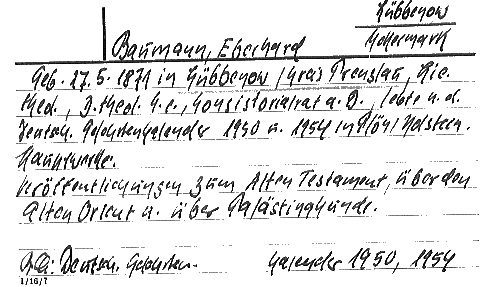 Lübbenow
Uckermark
Baumann, Eberhard
Geb. 27.5.1871 in Lübbenow, Kreis Prenzlau, Lic.
theol., D. theol. h.c., Konsistorialrat a.D., lebte n. d.
Deutsch. Gelehrtenkalender 1950 u. 1954 in Plön/Holstein.
Hauptwerke.
Veröffentlichungen zum Alten Testament, über den
Alten Orient u. über Palästinakunde.
Qu.: Deutsch. Gelehrten- Kalender 1950, 1954
1/16/7